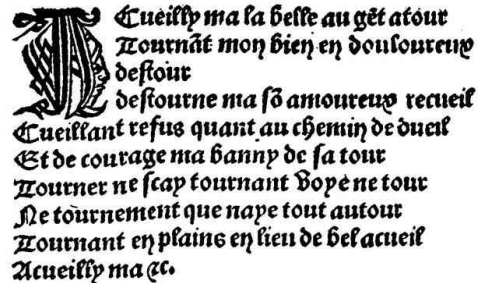 ACueilly ma la belle au gēt atour
Tournāt mon bien en douloureux
destour
destourne ma sō amoureux recueil
Cueillant refus quant au chemin de dueil
Et de courage ma banny de sa tour
Tourner ne scay tournant voye ne tour
Ne tournement que naye tout autour
Tournant en plains en lieu de bel acueil
Acueilly ma ⁊c.